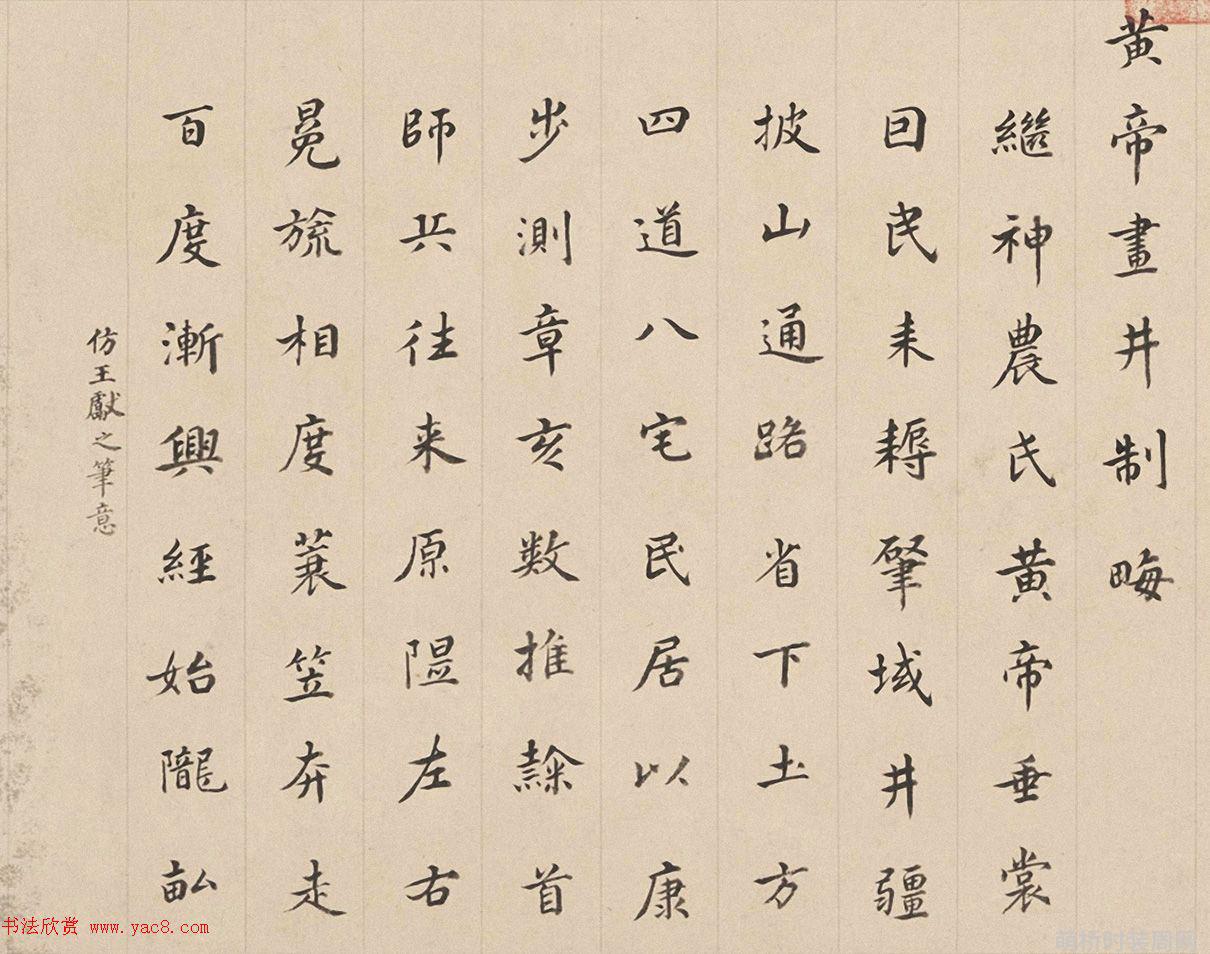 黄帝畫井制畮
繼神農氏黄帝垂裳
因民耒耨肇域井疆
披山通路省下土方
四道八宅民居以康
步測章亥数推隸首
師兵往来原隰左右
冕旒相度蓑笠奔走
百度漸興經始隴畝
仿王獻之筆意
书法欣赏 www.yac8.com
萌桥时装周网